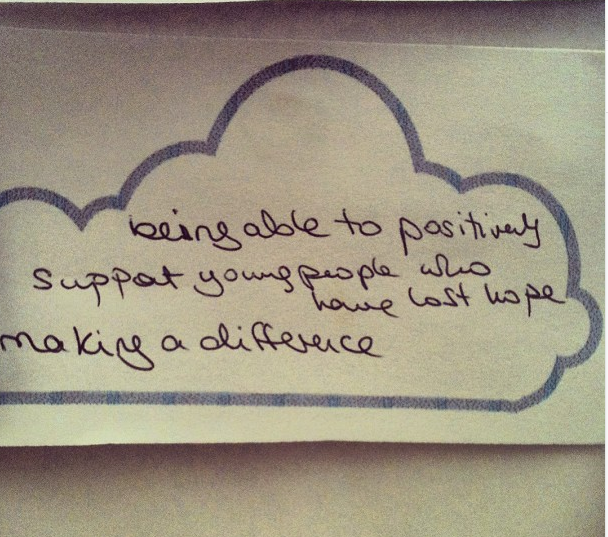 being able to positively
support young people who
have lost hope
making a difference